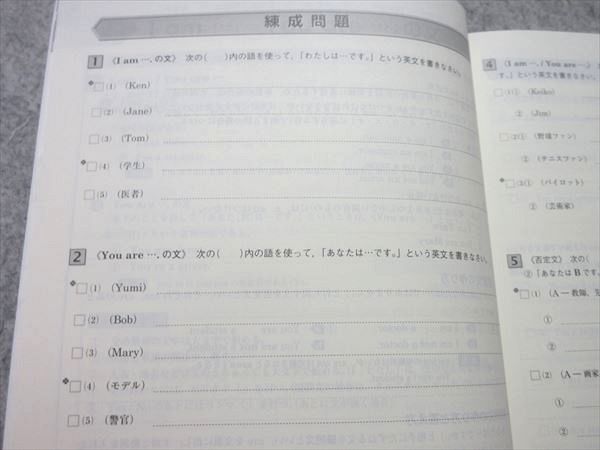 練成問題
1 〈I am ….の文〉 次の( )内の語を使って,「わたしは…です。」という英文を書きなさい。
□(1) (Ken)
□(2) (Jane)
□(3) (Tom)
□(4) (学生)
□(5) (医者)
2 〈You are ….の文〉 次の( )内の語を使って,「あなたは…です。」という英文を書きなさい。
□(1) (Yumi)
□(2) (Bob)
□(3) (Mary)
□(4) (モデル)
□(5) (警官)
4 〈I am … . / You are …
す。」という英文を書
□(1)① (Keiko)
② (Jim)
□(2)① (野球ファン)
② (テニスファン)
□(3)① (パイロット)
② (芸術家)
5 〈否定文〉 次の(
②「あなはBです
□(1) (A―教師,
①
②
□(2) (A―画家
①
②